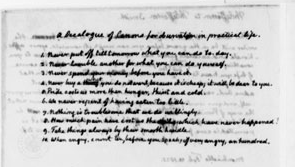 a Decalogue of Canons for observation in practical life.
1. Never put off till tomorrow what you can do to-day.
2. Never trouble another for what you can do yourself.
3. Never spend your money before you have it.
4. Never buy a thing you do not want, because it is cheap, it will be dear to you.
5. Pride costs us more than hunger, thirst and cold.
6. We never repent of having eaten too little.
7. Nothing is troublesome that we do willingly.
8. How much pain have cost us the evils which have never happened!
9. Take things always by their smooth handle.
10. When angry, count ten, before you speak; if very angry, an hundred.